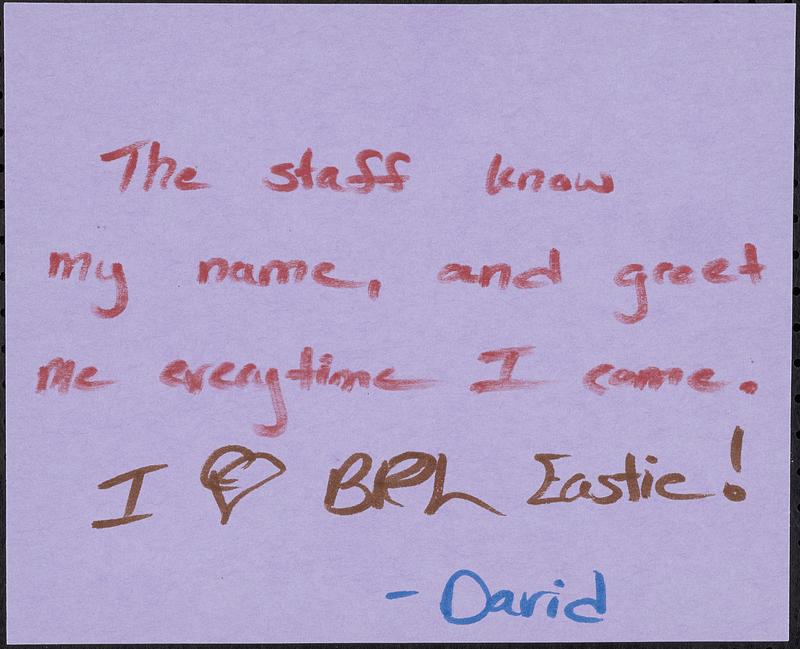 The staff know
my name, and greet
me everytime I come.
I ♡ BPL Eastie!
- David